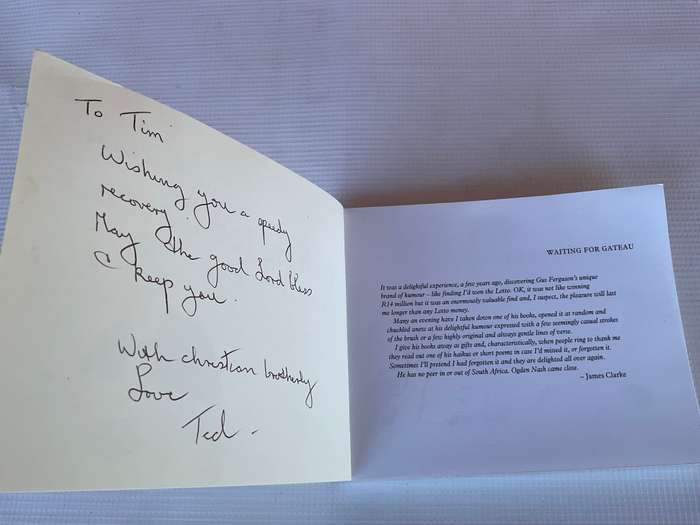 To Tim
Wishing you a speedy
recovery.
May the good Lord bless
& keep you.
With christian brotherly
Love
Ted -
WAITING FOR GATEAU
It was a delightful experience, a few years ago, discovering Gus Ferguson's unique
brand of humour – like finding I'd won the Lotto. OK, it was not like winning
R14 million but it was an enormously valuable find and, I suspect, the pleasure will last
me longer than any Lotto money.
Many an evening have I taken down one of his books, opened it at random and
chuckled anew at his delightful humour expressed with a few seemingly casual strokes
of the brush or a few highly original and always gentle lines of verse.
I give his books away as gifts and, characteristically, when people ring to thank me
they read out one of his haikus or short poems in case I'd missed it, or forgotten it.
Sometimes I'll pretend I had forgotten it and they are delighted all over again.
He has no peer in or out of South Africa. Ogden Nash came close.
– James Clarke